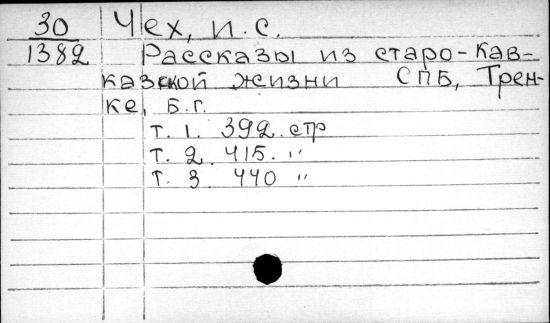 30 Чех, И. С.
1382 Рассказы из старо-кав-
казской жизни СПБ, Трен-
ке, Б.г.
т. 1. 392 стр
т. 2. 415. "
т. 3 440 "